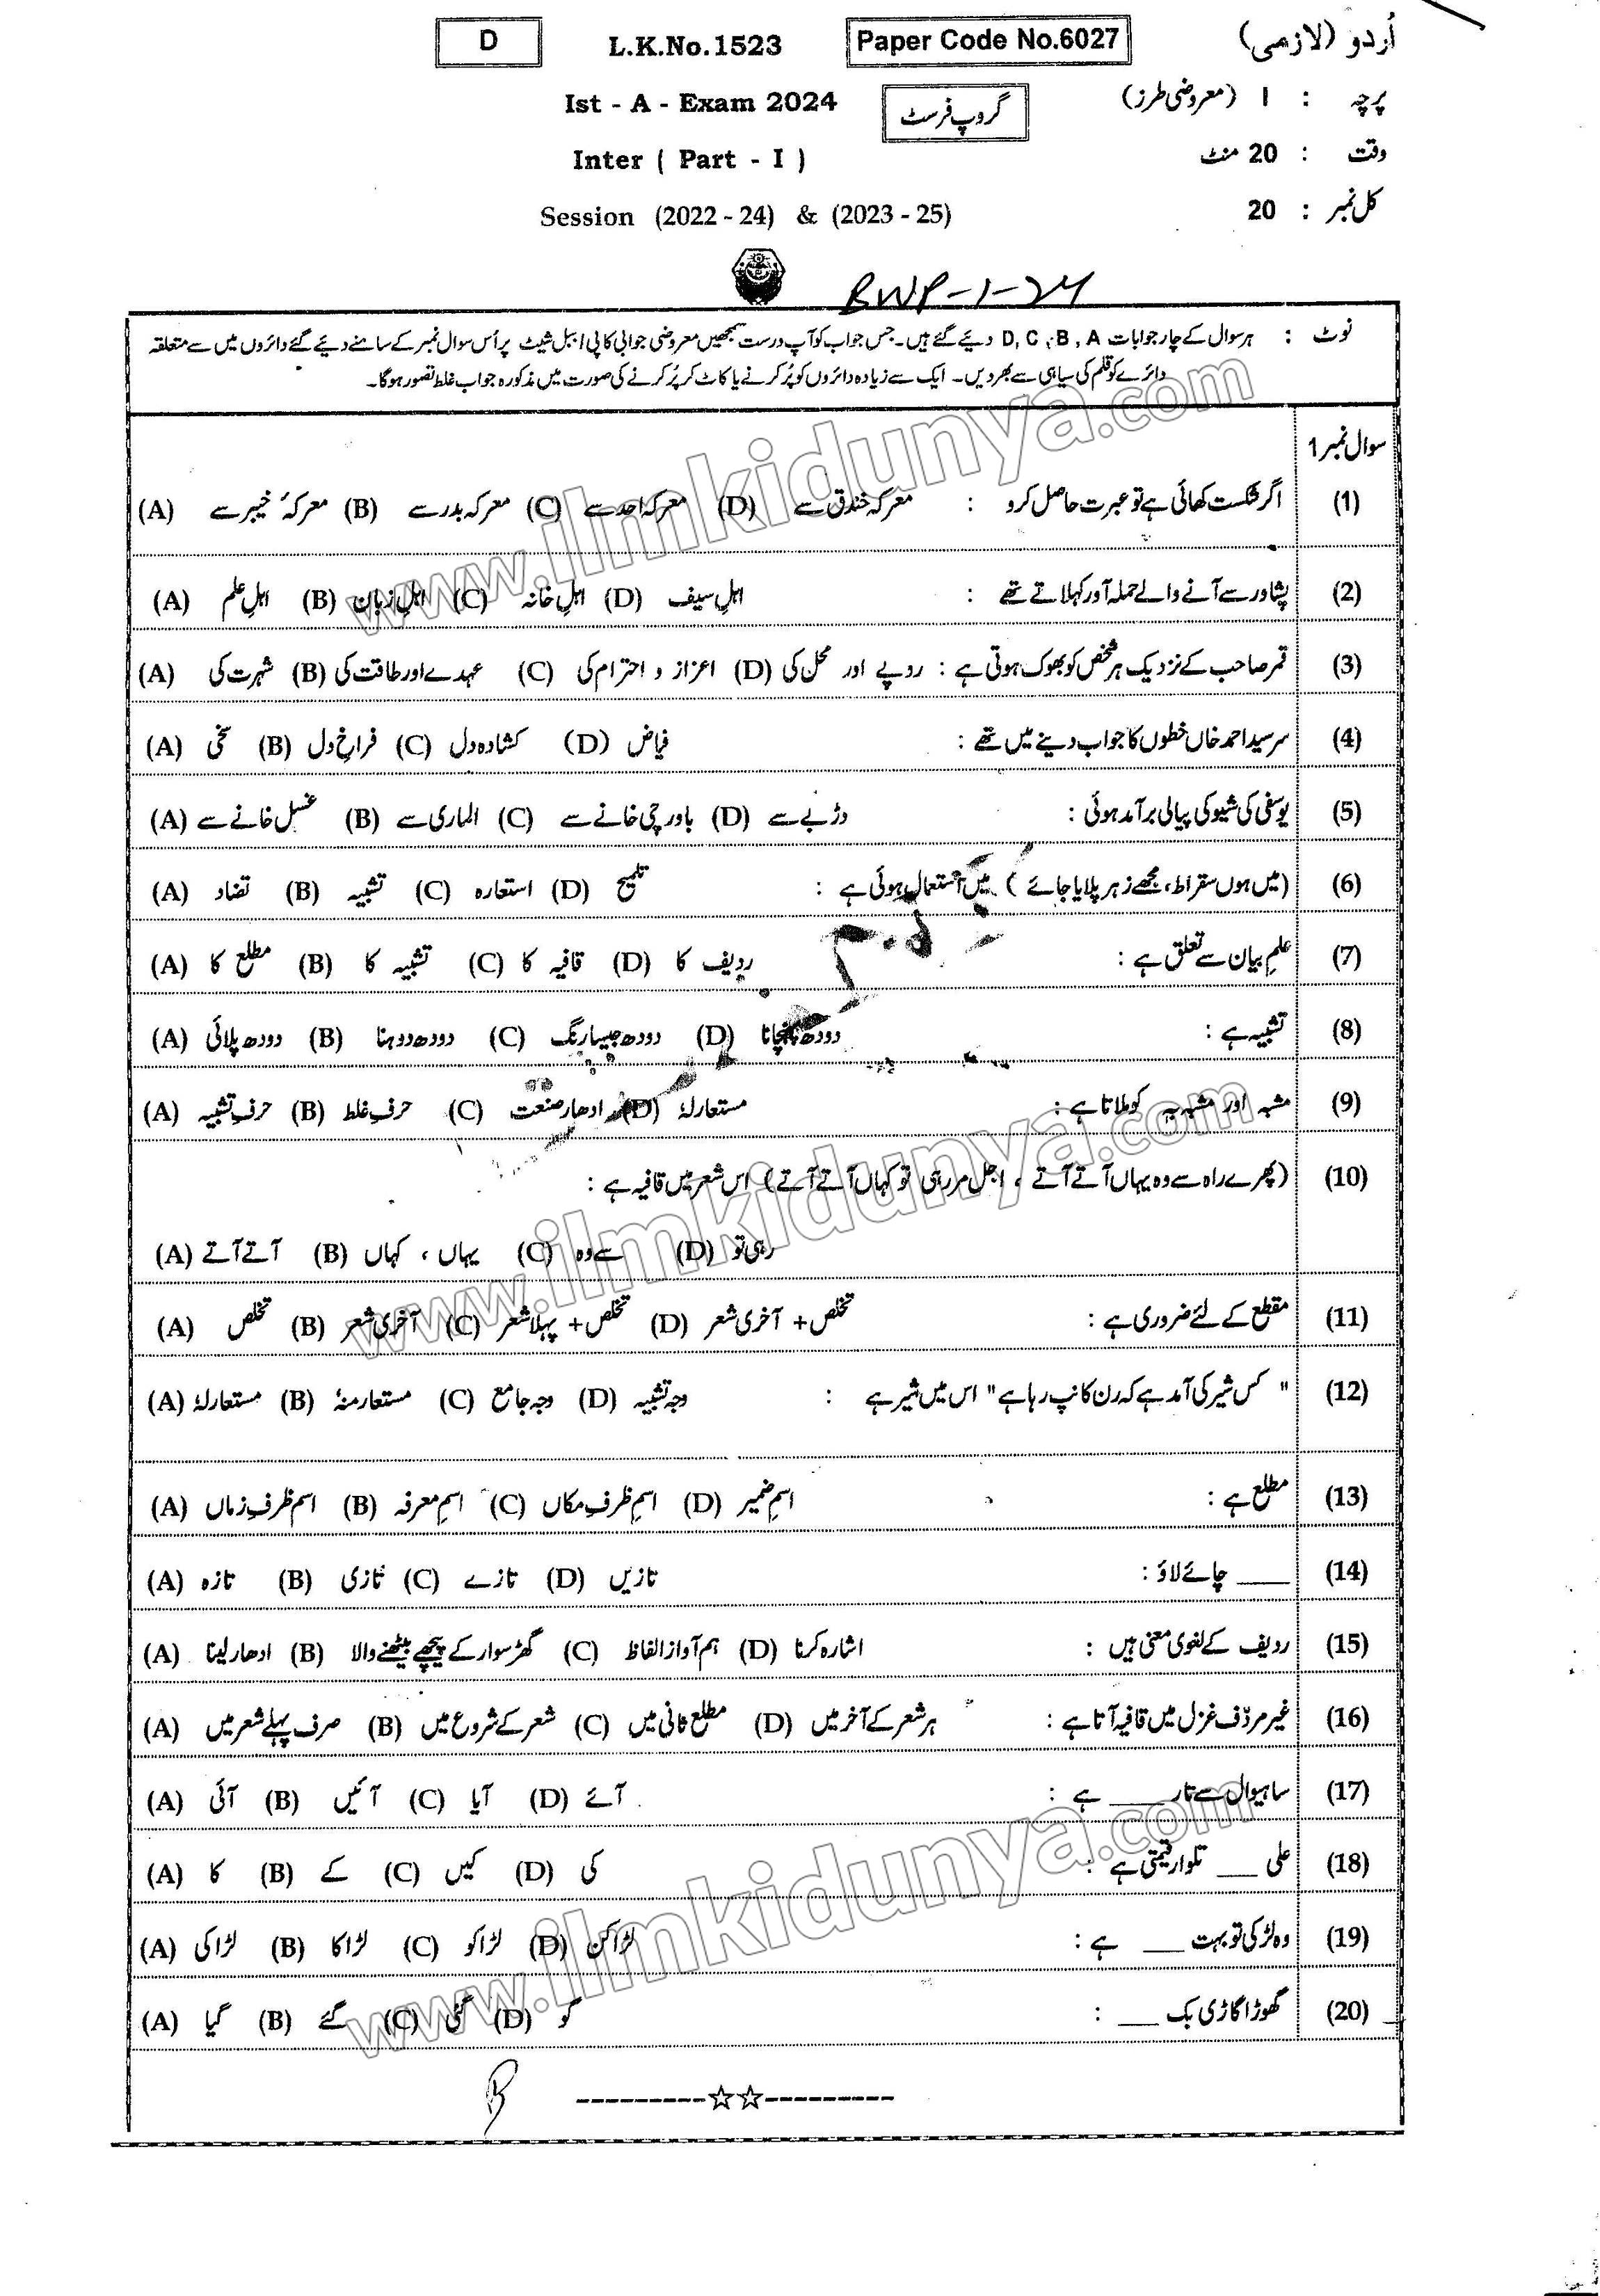 D L.K.No.1523 Paper Code No.6027 اُردو (لازمی)
Ist - A - Exam 2024 گروپ فرسٹ پرچہ : I (معروضی طرز)
Inter ( Part - I ) وقت : 20 منٹ
Session (2022 - 24) & (2023 - 25) کل نمبر : 20
BWP-1-24
نوٹ : ہر سوال کے چار جوابات A ,B ,C ,D دیے گئے ہیں۔ جس جواب کو آپ درست سمجھیں معروضی جوابی کاپی / ببل شیٹ پر اُس سوال نمبر کے سامنے دیے گئے دائروں میں سے متعلقہ
دائرے کو قلم کی سیاہی سے بھر دیں۔ ایک سے زیادہ دائروں کو پُر کرنے یا کاٹ کر پُر کرنے کی صورت میں مذکورہ جواب غلط تصور ہوگا۔
سوال نمبر 1
(1) اگر شکست کھائی ہے تو عبرت حاصل کرو : معرکہ خندق سے (D) معرکہ احد سے (C) معرکہ بدر سے (B) معرکۂ خیبر سے (A)
(2) پشاور سے آنے والے حملہ آور کہلاتے تھے : اہلِ سیف (D) اہلِ خانہ (C) اہلِ زبان (B) اہلِ علم (A)
(3) قمر صاحب کے نزدیک ہر شخص کو بھوک ہوتی ہے : روپے اور محل کی (D) اعزاز و احترام کی (C) عہدے اور طاقت کی (B) شہرت کی (A)
(4) سرسید احمد خاں خطوں کا جواب دینے میں تھے : فیاض (D) کشادہ دل (C) فراخ دل (B) سخی (A)
(5) یوسفی کی شیو کی پیالی برآمد ہوئی : دڑبے سے (D) باورچی خانے سے (C) الماری سے (B) غسل خانے سے (A)
(6) (میں ہوں سقراط، مجھے زہر پلایا جائے) میں استعمال ہوئی ہے : تلمیح (D) استعارہ (C) تشبیہ (B) تضاد (A)
(7) علمِ بیان سے تعلق ہے : ردیف کا (D) قافیہ کا (C) تشبیہ کا (B) مطلع کا (A)
(8) تشبیہ ہے : دودھ (D) دودھ جیسا رنگ (C) دودھ دوہنا (B) دودھ پلائی (A)
(9) مشبہ اور مشبہ بہ کو ملاتا ہے : مستعارلہٗ (D) ادھار صنعت (C) حرفِ غلط (B) حرفِ تشبیہ (A)
(10) (پھرے راہ سے وہ یہاں آتے آتے ، اجل مر رہی تو کہاں آتے آتے) اس شعر میں قافیہ ہے :
رہی تو (D) سے وہ (C) یہاں ، کہاں (B) آتے آتے (A)
(11) مقطع کے لئے ضروری ہے : تخلص + آخری شعر (D) تخلص + پہلا شعر (C) آخری شعر (B) تخلص (A)
(12) " کس شیر کی آمد ہے کہ رن کانپ رہا ہے " اس میں شیر ہے : وجہ تشبیہ (D) وجہ جامع (C) مستعار منہٗ (B) مستعارلہٗ (A)
(13) مطلع ہے : اسمِ ضمیر (D) اسمِ ظرفِ مکاں (C) اسمِ معرفہ (B) اسم ظرفِ زماں (A)
(14) ____ چائے لاؤ : تازیں (D) تازے (C) تازی (B) تازہ (A)
(15) ردیف کے لغوی معنی ہیں : اشارہ کرنا (D) ہم آواز الفاظ (C) گھڑ سوار کے پیچھے بیٹھنے والا (B) ادھار لینا (A)
(16) غیر مردّف غزل میں قافیہ آتا ہے : ہر شعر کے آخر میں (D) مطلع ثانی میں (C) شعر کے شروع میں (B) صرف پہلے شعر میں (A)
(17) ساہیوال سے تار ____ ہے : آئے (D) آیا (C) آئیں (B) آئی (A)
(18) علی ___ تلوار قیمتی ہے : کی (D) کیں (C) کے (B) کا (A)
(19) وہ لڑکی تو بہت ___ ہے : لڑاکن (D) لڑاکو (C) لڑاکا (B) لڑاکی (A)
(20) گھوڑا گاڑی بک ___ : گو (D) گئی (C) گئے (B) گیا (A)
www.ilmkidunya.com
www.ilmkidunya.com
www.ilmkidunya.com